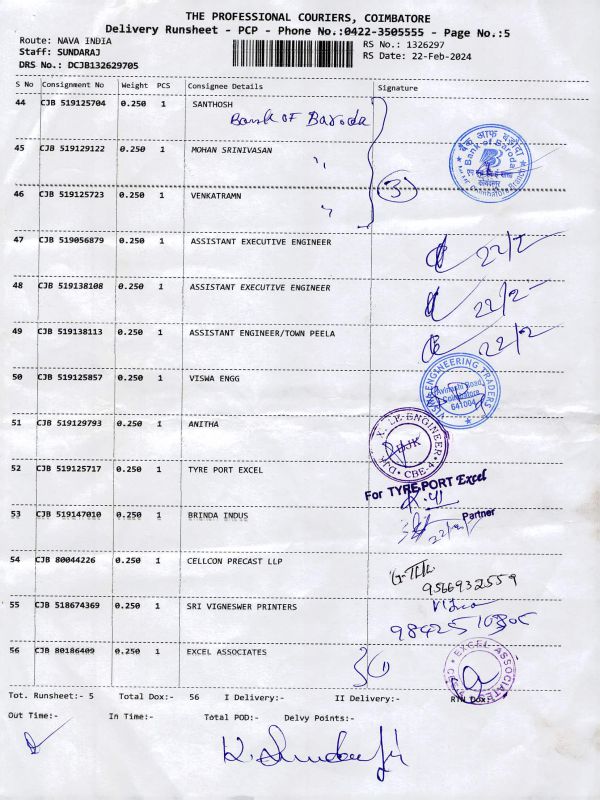 THE PROFESSIONAL COURIERS, COIMBATORE
Delivery Runsheet - PCP - Phone No.:0422-3505555 - Page No.:5
Route: NAVA INDIA
RS No.: 1326297
Staff: SUNDARAJ
RS Date: 22-Feb-2024
DRS No.: DCJB132629705
S No Consignment No Weight PCS Consignee Details Signature
44 CJB 519125704 0.250 1 SANTHOSH
Bank OF Baroda
45 CJB 519129122 0.250 1 MOHAN SRINIVASAN
बैंक ऑफ़ बड़ौदा
Bank of Baroda
46 CJB 519125723 0.250 1 VENKATRAMN
3
47 CJB 519056879 0.250 1 ASSISTANT EXECUTIVE ENGINEER
22/2
48 CJB 519138108 0.250 1 ASSISTANT EXECUTIVE ENGINEER
22/2
49 CJB 519138113 0.250 1 ASSISTANT ENGINEER/TOWN PEELA
22/2
50 CJB 519125857 0.250 1 VISWA ENGG
ENGINEERING TRADERS
Avinashi Road
Coimbatore
641004
51 CJB 519129793 0.250 1 ANITHA
DJK
CBE-4
52 CJB 519125717 0.250 1 TYRE PORT EXCEL
For TYRE PORT Excel
Partner
53 CJB 519147010 0.250 1 BRINDA INDUS
54 CJB 80044226 0.250 1 CELLCON PRECAST LLP
9566932559
55 CJB 518674369 0.250 1 SRI VIGNESWER PRINTERS
56 CJB 80186409 0.250 1 EXCEL ASSOCIATES
EXCEL ASSOCIATES
Tot. Runsheet:- 5 Total Dox:- 56 I Delivery:- II Delivery:- RTN Dox:-
Out Time:- In Time:- Total POD:- Delvy Points:-